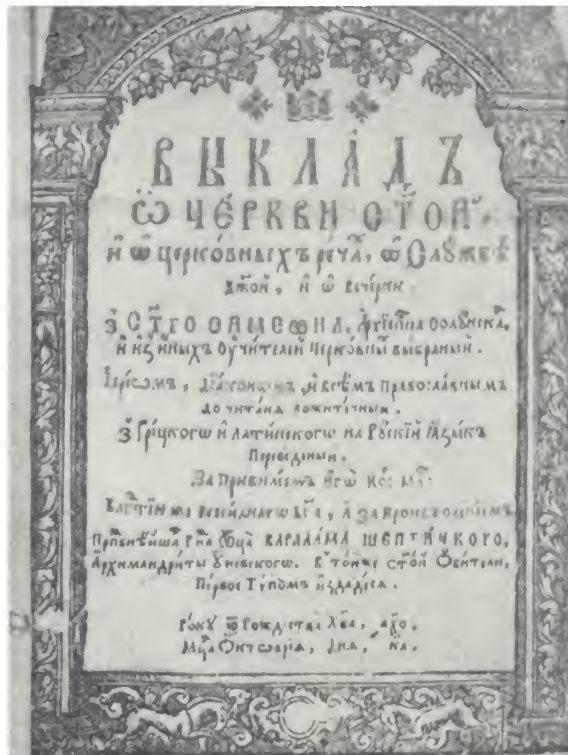 ВЫКЛАДЪ
Ѿ ЧЕРКВИ СТ҃ОЙ,
и ѡ церко́вныхъ рѣча́, ѡ Слꙋжбѣ
бж҃ой, и ѡ вечерни.
З СТ҃ГО СѴМЕѠНА, Архиеп҃па Солꙋнска,
и из иныхъ оучителей Черковны́ выбраный.
Іере́ѡмъ, Діаконѡмъ, и всѣмъ Православнымъ
до читаня пожитечный.
З Грецкогѡ и Латинскогѡ на Рꙋскїй Ꙗзыкъ
Переведеный.
За Привилиемъ Егѡ Кор: Мл҃:
Прп҃бнѣйша Гн҃а Ѻц҃а ВАРЛААМА ШЕПТИЦКОГО,
Архимандриты Оуневскогѡ. В той же ст҃ой Ѻбители,
Первое Тѵпомъ издадеся.
Рокꙋ ѿ Рождества Хв҃а, ахо.
Мц҃а Ѻктоврїа, Дня, ка.